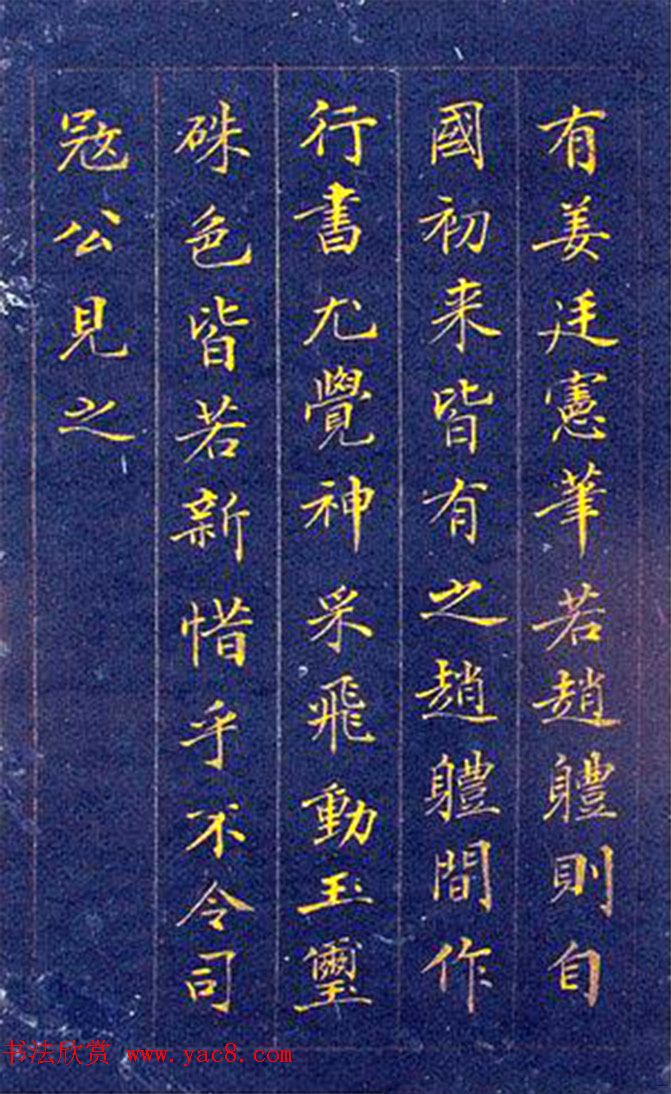 有姜廷憲華若趙軆則自
國初来皆有之趙軆間作
行書尤覺神采飛動玉璽
硃色皆若新惜乎不令司
冦公見之
书法欣赏 www.yac8.com